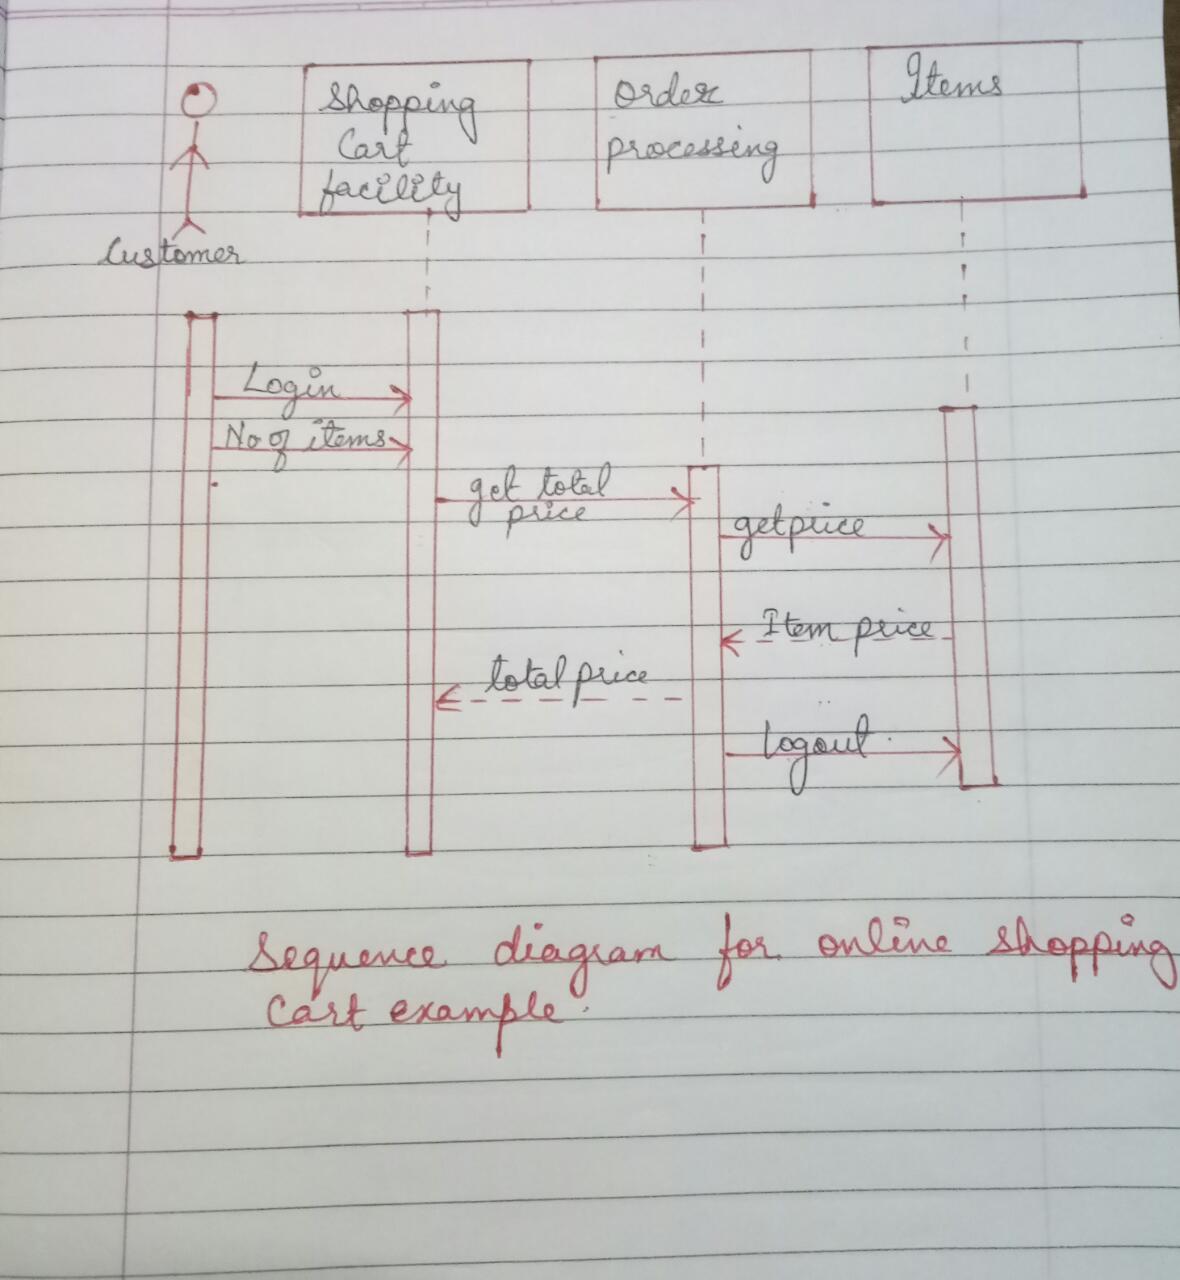 Shopping
Cart
facility
Order
processing
Items
Customer
Login
No of items
get total
price
getprice
Item price
total price
Logout
Sequence diagram for online shopping
Cart example.